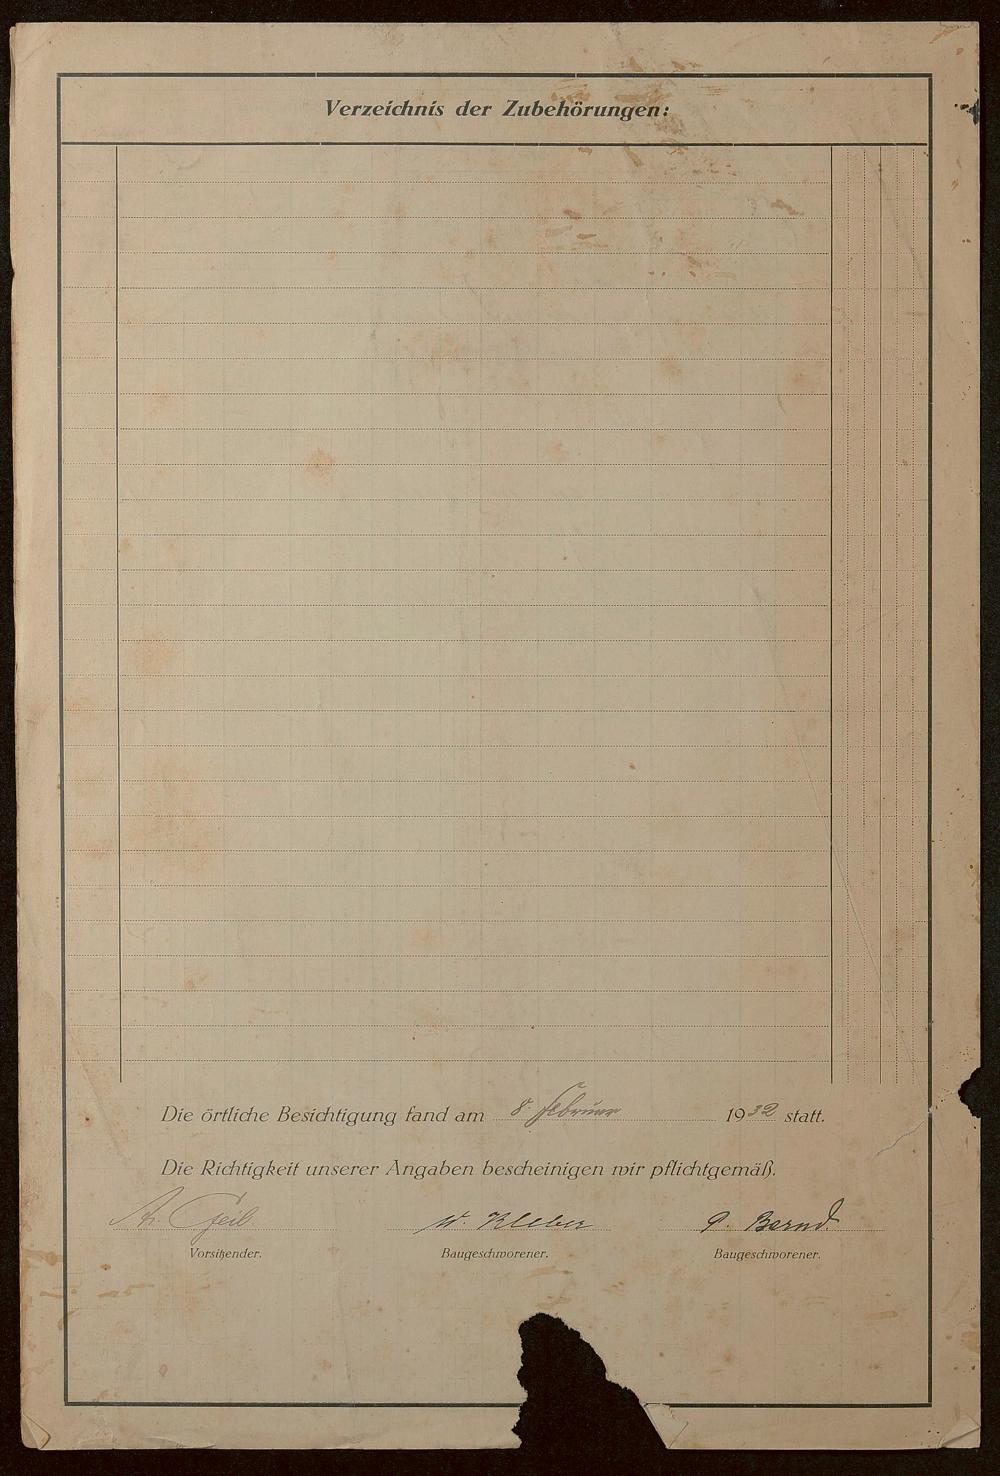 Verzeichnis der Zubehörungen:
Die örtliche Besichtigung fand am 8. Februar 1932 statt.
Die Richtigkeit unserer Angaben bescheinigen wir pflichtgemäß.
Geil W. Kleber P. Bernd.
Vorsitzender. Baugeschworener. Baugeschworener.